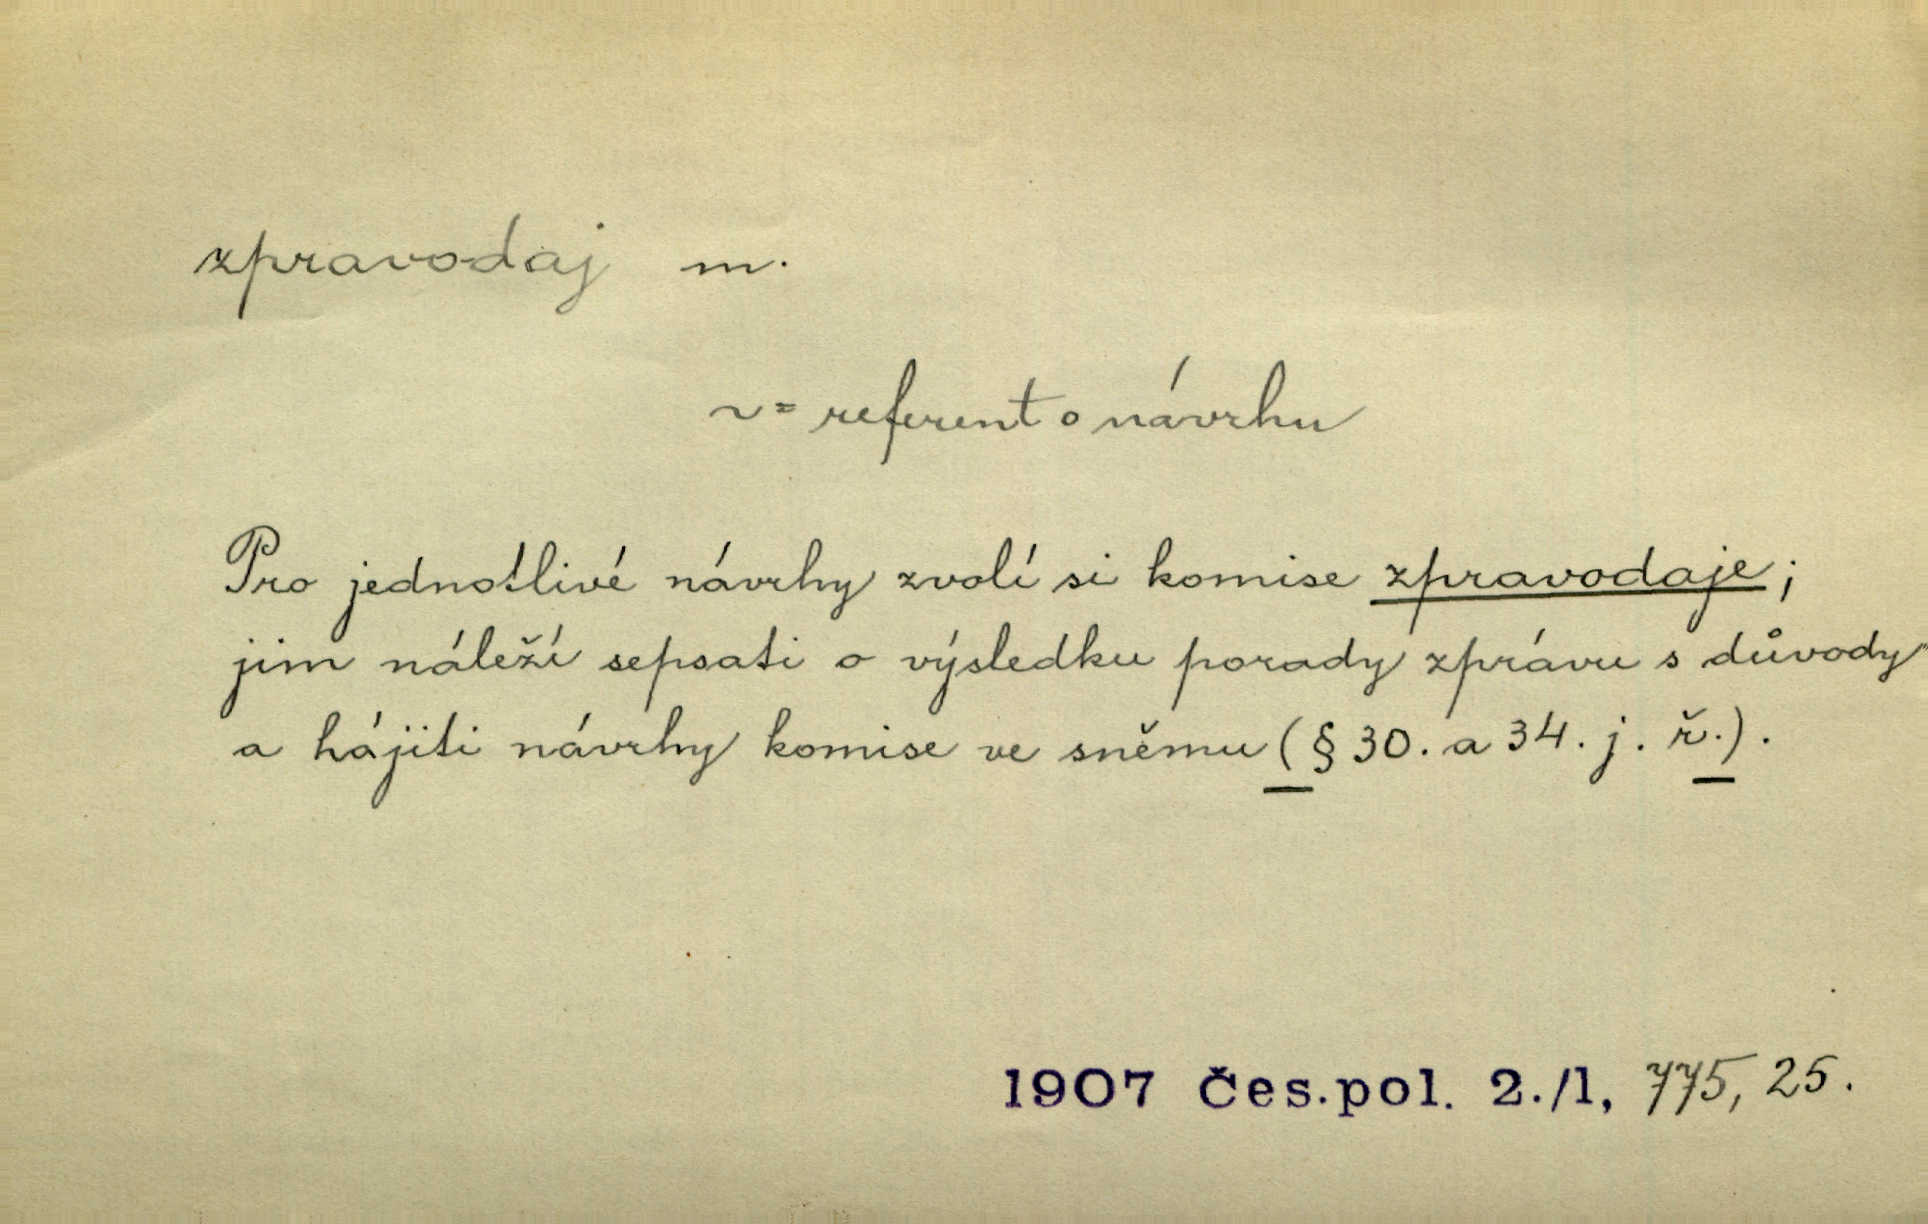 zpravodaj m.
~ = referent o návrhu
Pro jednotlivé návrhy zvolí si komise zpravodaje;
jim náleží sepsati o výsledku porady zprávu s důvody
a hájiti návrhy komise ve sněmu (§ 30. a 34. j. ř.).
1907 Čes.pol. 2./1, 775, 25.